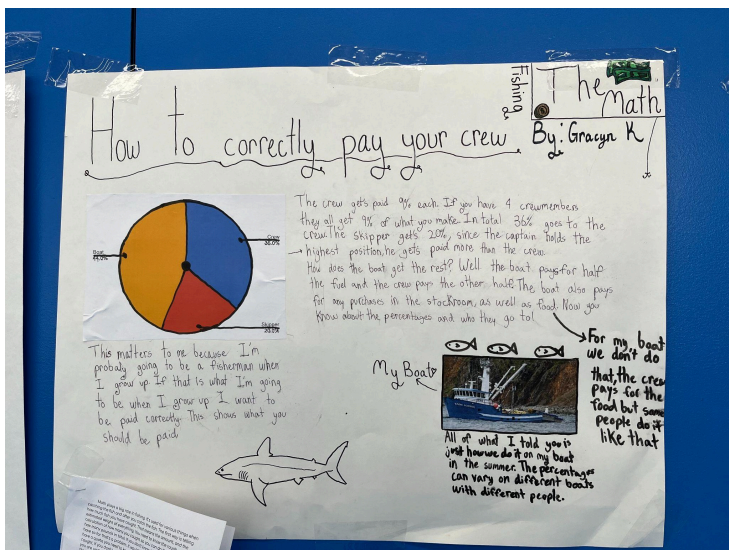 Fishing
The
Math
How to correctly pay your crew
By: Gracyn K
The crew gets paid 9% each. If you have 4 crewmembers
they all get 9% of what you make. In total 36% goes to the
crew. The skipper gets 20%, since the captain holds the
highest position, he gets paid more than the crew.
How does the boat get the rest? Well the boat pays for half
the fuel and the crew pays the other half. The boat also pays
for any purchases in the stockroom, as well as food. Now you
know about the percentages and who they go to!
Crew
36.0%
Boat
44.0%
Skipper
20.0%
For my boat
we don't do
that, the crew
pays for the
food but some
people do it
like that
This matters to me because I'm
probaly going to be a fisherman when
I grow up. If that is what I'm going
to be when I grow up I want to
be paid correctly. This shows what you
should be paid
My Boat
All of what I told you is
just how we do it on my boat
in the summer. The percentages
can vary on different boats
with different people.